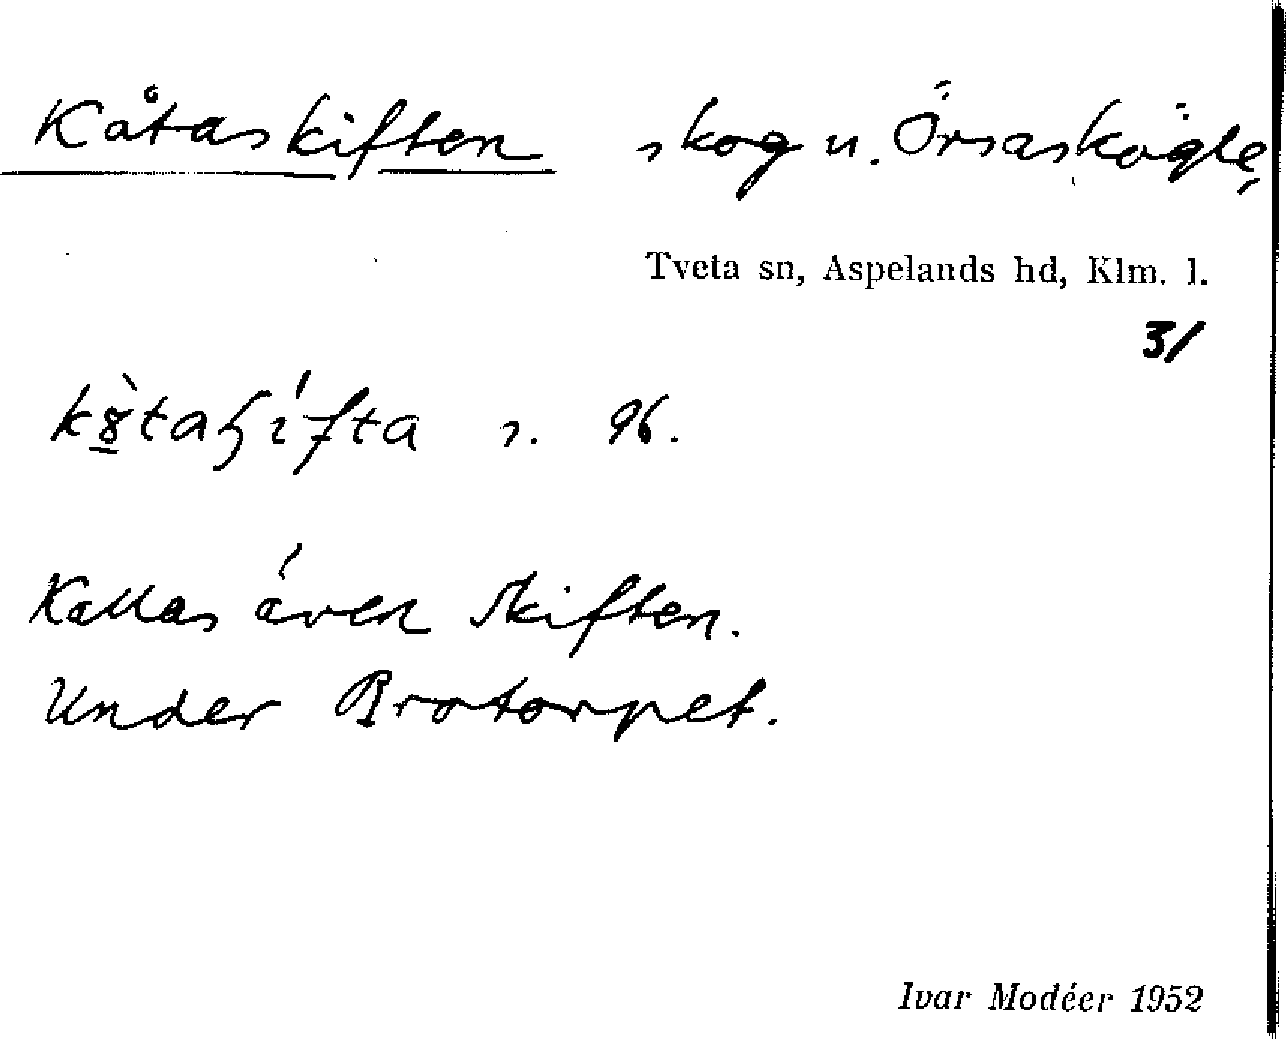 Kåtaskiften skog u. Örsaskögle,
Tveta sn, Aspelands hd, Klm. l.
3/
s. 96.
Kallas även Skiften.
Under Brotorpet.
Ivar Modéer 1952